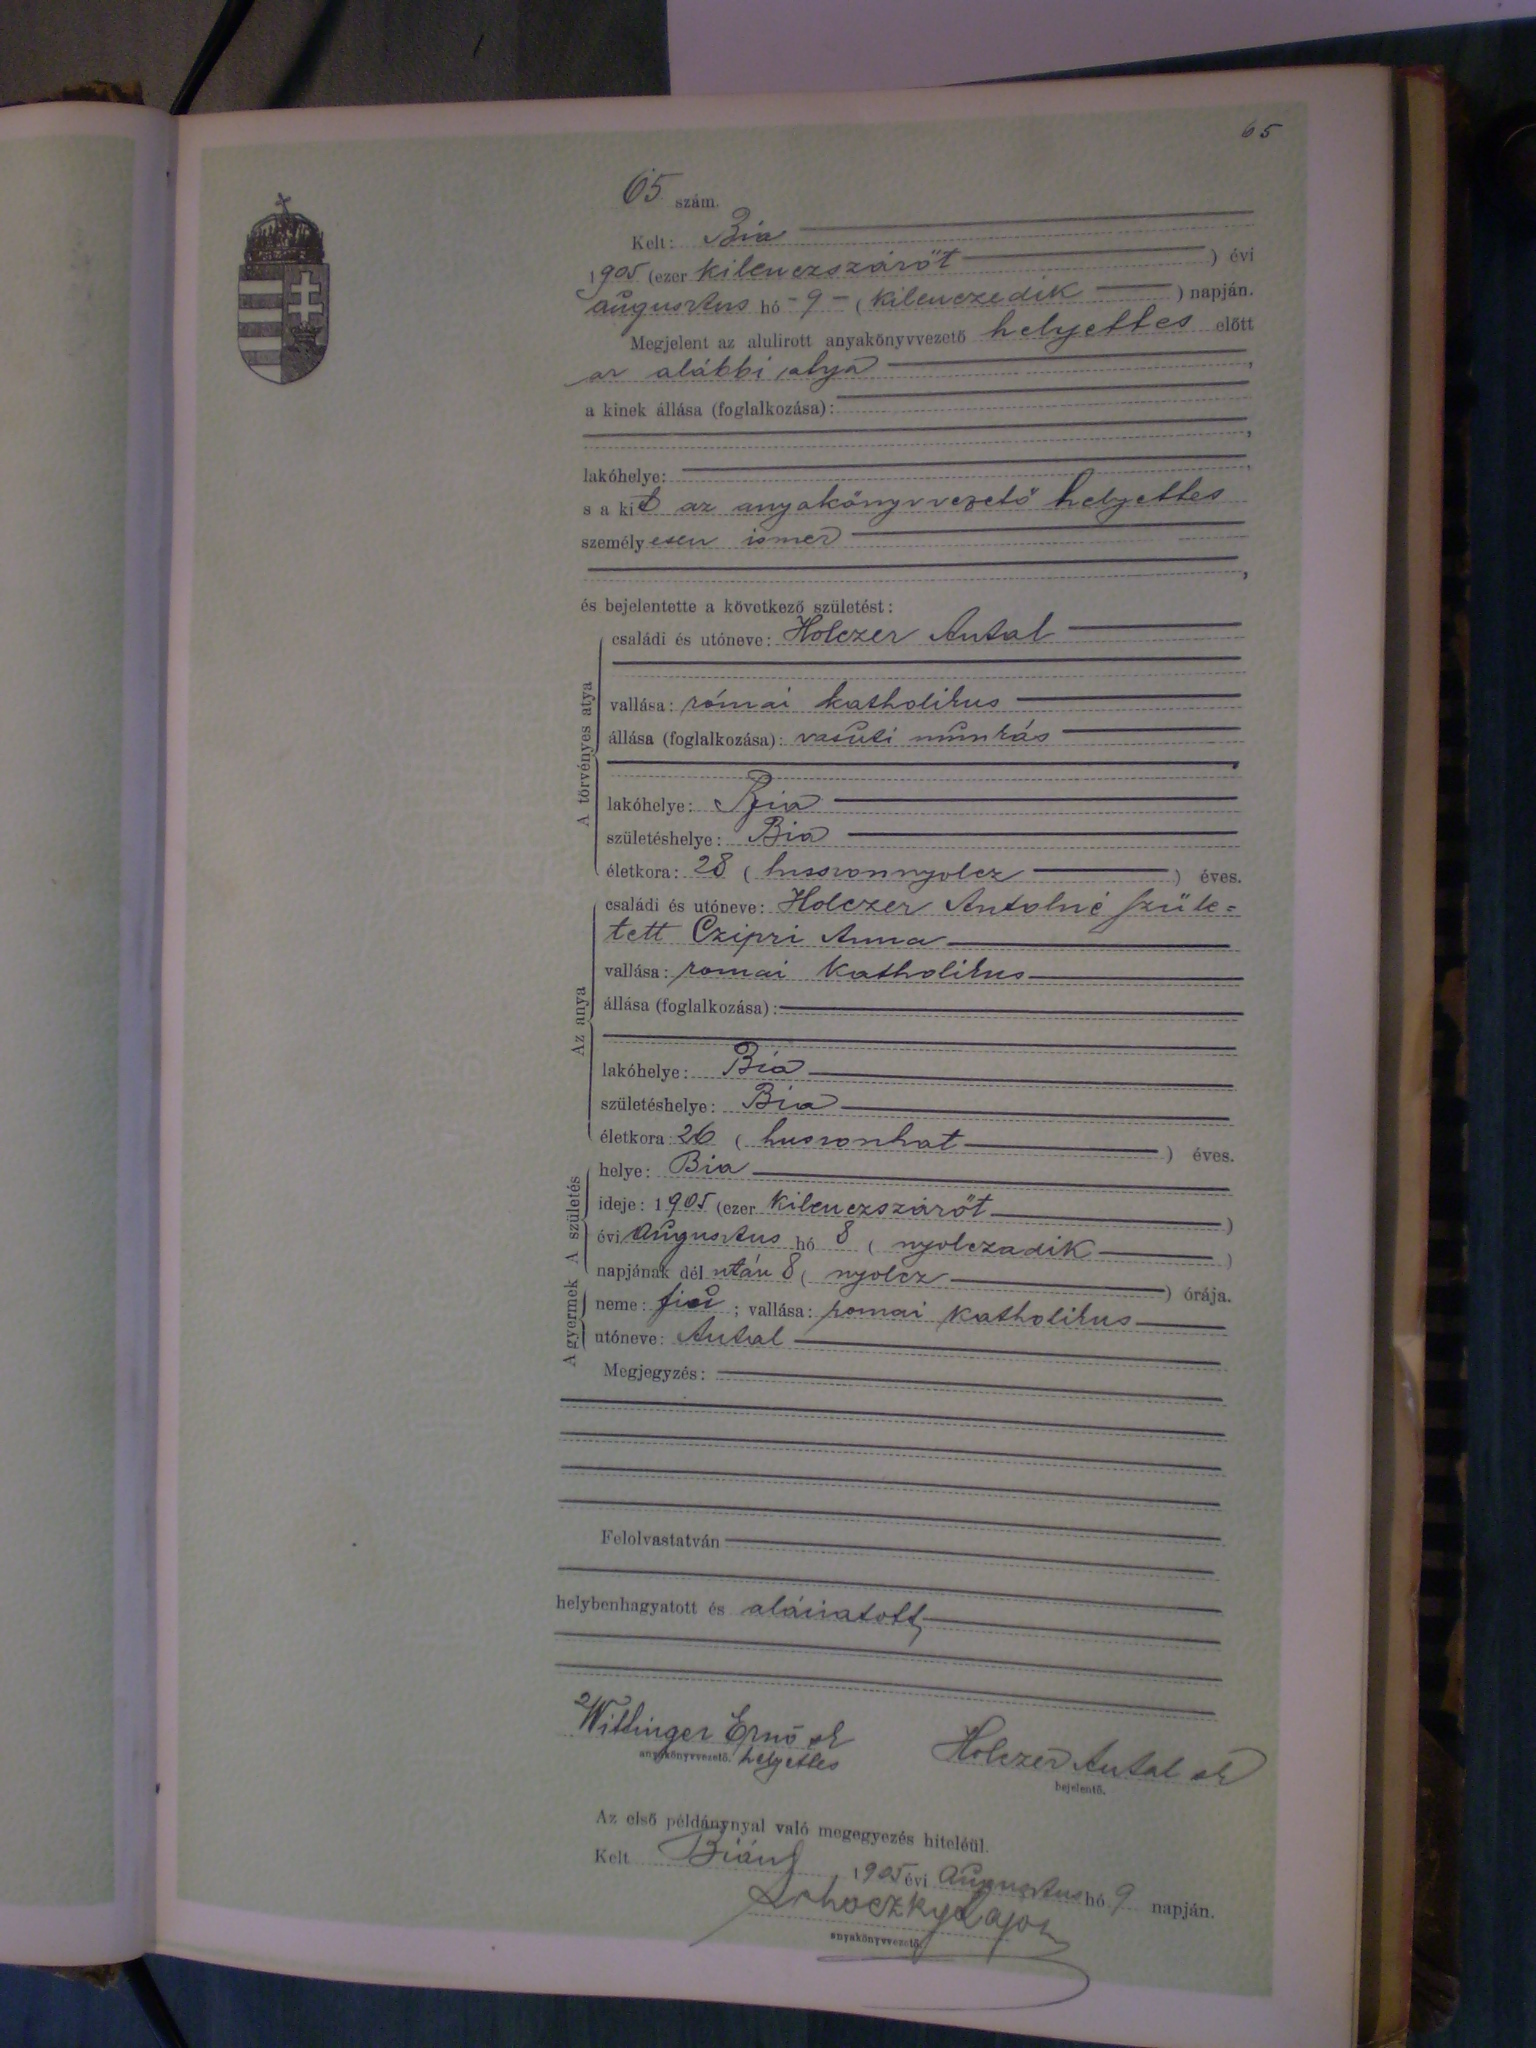 65
65 szám.
Kelt: Bia
1905 (ezer kilenczszázöt) évi
augusztus hó -9- (kilenczedik) napján.
Megjelent az alulirott anyakönyvvezető helyettes előtt
az alábbi atya,
a kinek állása (foglalkozása):
lakóhelye:
s a kit az anyakönyvvezető helyettes
személyesen ismer
és bejelentette a következő születést:
A törvényes atya
családi és utóneve: Holczer Antal
vallása: római katholikus
állása (foglalkozása): vasuti munkás
lakóhelye: Bia
születéshelye: Bia
életkora: 28 (huszonnyolcz) éves.
Az anya
családi és utóneve: Holczer Antalné szüle=
tett Czipri Anna
vallása: romai katholikus
állása (foglalkozása):
lakóhelye: Bia
születéshelye: Bia
életkora: 26 (huszonhat) éves.
A születés
helye: Bia
ideje: 1905 (ezer kilenczszázöt)
évi augusztus hó 8 (nyolczadik)
napjának dél után 8 (nyolcz) órája.
A gyermek
neme: fiú; vallása: romai katholikus
utóneve: Antal
Megjegyzés:
Felolvastatván
helybenhagyatott és aláiratott
Wittinger Ernő sk
anyakönyvvezető. helyettes
Holczer Antal sk
bejelentő.
Az első példánynyal való megegyezés hiteléül.
Kelt Bián, 1905 évi augusztus hó 9 napján.
Lajos
anyakönyvvezető.